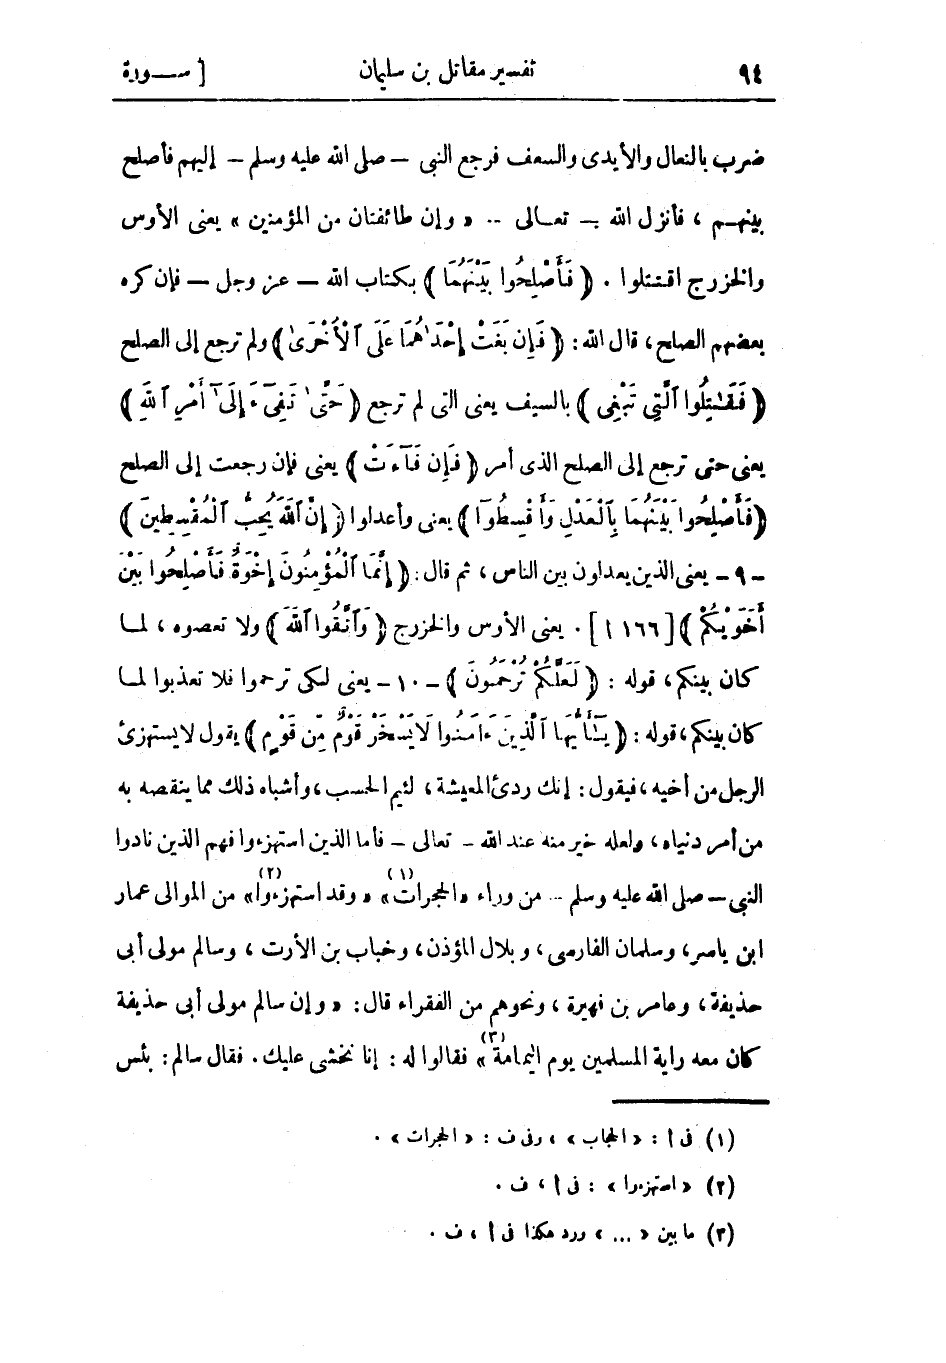 ٩٤ تفسير مقاتل بن سليمان [ ســـورة
ضرب بالنعال والأيدى والسعف فرجع النبى — صلى الله عليه وسلم — إليهم فأصلح
بينهـم ، فأنزل الله — تعـالى — « وإن طائفتان من المؤمنين » يعنى الأوس
والخزرج اقتتلوا . ﴿ فَأَصْلِحُوا بَيْنَهُمَا ﴾ بكتاب الله — عز وجل — فإن كره
بعضهم الصلح ، قال الله : ﴿ فَإِن بَغَتْ إِحْدَىٰهُمَا عَلَى ٱلْأُخْرَىٰ ﴾ ولم ترجع إلى الصلح
﴿ فَقَـٰتِلُوا ٱلَّتِى تَبْغِى ﴾ بالسيف يعنى التى لم ترجع ﴿ حَتَّىٰ تَفِىٓءَ إِلَىٰٓ أَمْرِ ٱللَّهِ ﴾
يعنى حتى ترجع إلى الصلح الذى أمر ﴿ فَإِن فَآءَتْ ﴾ يعنى فإن رجعت إلى الصلح
﴿ فَأَصْلِحُوا بَيْنَهُمَا بِٱلْعَدْلِ وَأَقْسِطُوٓا ﴾ يعنى وأعدلوا ﴿ إِنَّ ٱللَّهَ يُحِبُّ ٱلْمُقْسِطِينَ ﴾
— ٩ — يعنى الذين يعدلون بين الناس ، ثم قال : ﴿ إِنَّمَا ٱلْمُؤْمِنُونَ إِخْوَةٌ فَأَصْلِحُوا بَيْنَ
أَخَوَيْكُمْ ﴾ [ ١٦٦ أ ] . يعنى الأوس والخزرج ﴿ وَٱتَّقُوا ٱللَّهَ ﴾ ولا تعصوه ، لمـا
كان بينكم ، قوله : ﴿ لَعَلَّكُمْ تُرْحَمُونَ ﴾ — ١٠ — يعنى لكى ترحموا فلا تعذبوا لمـا
كان بينكم ، قوله : ﴿ يَـٰٓأَيُّهَا ٱلَّذِينَ ءَامَنُوا لَا يَسْخَرْ قَوْمٌ مِّن قَوْمٍ ﴾ يقول لا يستهزئ
الرجل من أخيه ، فيقول : إنك ردئ المعيشة ، لئيم الحسب ، وأشباه ذلك مما ينقصه به
من أمر دنياه ، ولعله خير منه عند الله — تعالى — فأما الذين استهزءوا فهم الذين نادوا
النبى — صلى الله عليه وسلم — من وراء «الحجرات» (١) « وقد استهزءوا» (٢) من الموالى عمار
ابن ياسر ، وسلمان الفارسى ، وبلال المؤذن ، وخباب بن الأرت ، وسالم مولى أبى
حذيفة ، وعامر بن فهيرة ، ونحوهم من الفقراء قال : « وإن سالم مولى أبى حذيفة
كان معه راية المسلمين يوم اليمامة (٣) » فقالوا له : إنا نخشى عليك . فقال سالم : بئس
(١) فى أ : « الحجاب » ، وفى ف : « الحجرات » .
(٢) « استهزءوا » : فى أ ، ف .
(٣) ما بين « ... » ورد هكذا فى أ ، ف .